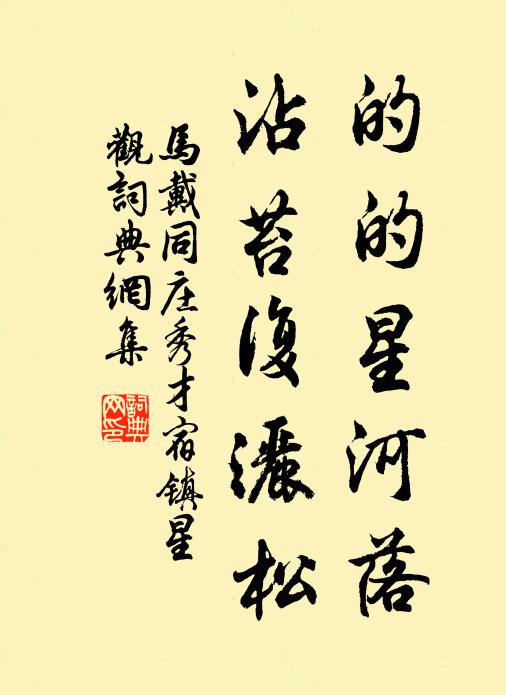 的的星河落
沾苔復灑松
馬戴同庄秀才宿鎮星
觀詞典網集
詞典网印